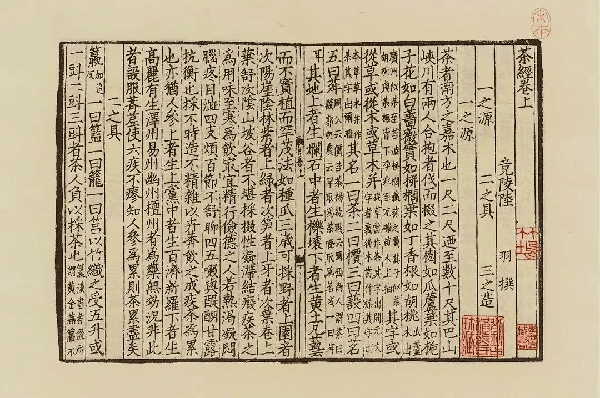 茶經卷上
竟陵陸 羽 撰
一之源 二之具 三之造
一之源
茶者南方之嘉木也一尺二尺迺至數十尺其巴山
峽川有兩人合抱者伐而掇之其樹如瓜蘆葉如梔
子花如白薔薇實如栟櫚葉如丁香根如胡桃
其字或
從草或從木或草木并
其名一曰茶二曰檟三曰蔎四曰茗
五曰荈
耳其地上者生爛石中者生櫟壤下者生黃土凡藝
而不實植而罕茂法如種瓜三歲可採野者上園者
次陽崖陰林紫者上綠者次笋者上牙者次葉卷上
葉舒次陰山坡谷者不堪採掇性凝滯結瘕疾茶之
為用味至寒為飲最宜精行儉德之人若熱渴凝悶
腦疼目澁四支煩百節不舒聊四五啜與醍醐甘露
抗衡也採不時造不精雜以卉莽飲之成疾茶為累
也亦猶人參上者生上黨中者生百濟新羅下者生
高麗有生澤州易州幽州檀州者為藥無効況非此
者設服薺苨使六疾不瘳知人參為累則茶累盡矣
二之具
籝加追反一曰籃一曰籠一曰筥以竹織之受五升或
一㪷二㪷三㪷者茶人負以採茶也